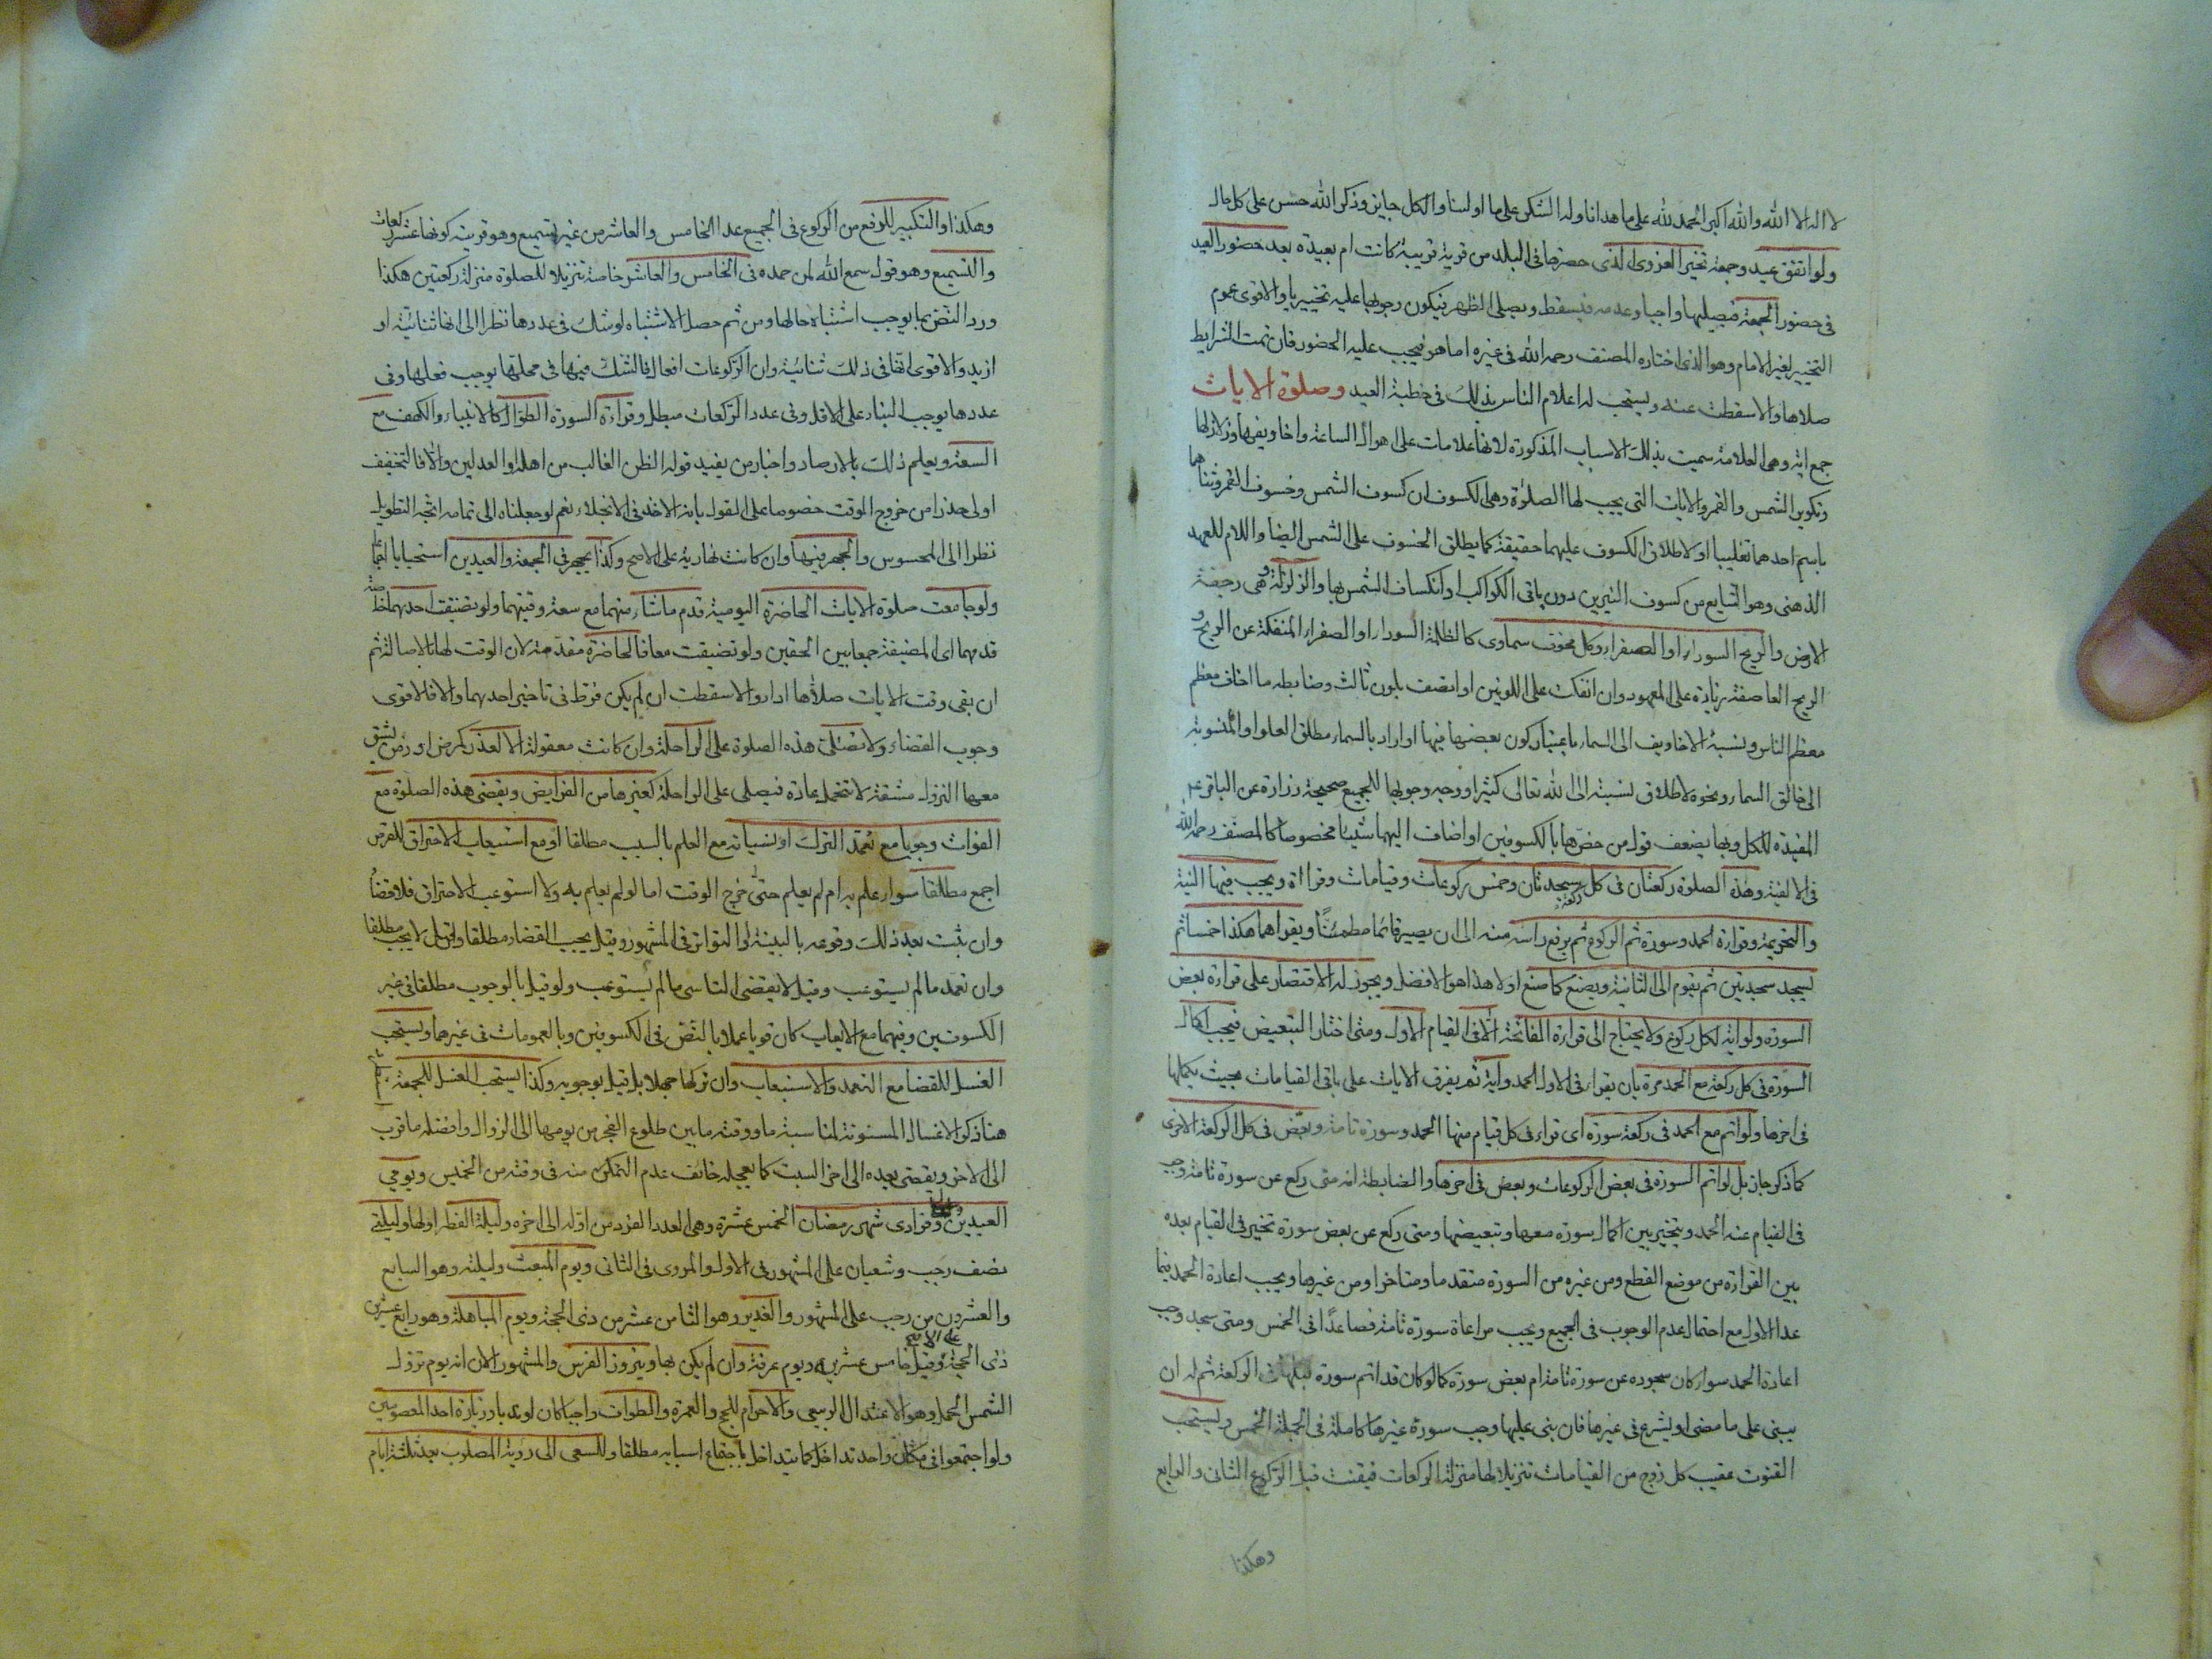 لا اله الا الله والله اكبر الحمد لله على ما هدانا وله الشكر على ما اولينا والكل جايز وذكر الله حسن على كل حال
ولو اتفق عيد وجمعة تخير القروى الذى حضرها فى البلد من قرية قريبة كانت ام بعيدة بعد حضور العيد
فى حضور الجمعة فيصليها واجبا وعدمه فيسقط ويصلى الظهر فيكون وجوبها عليه تخييريا والاقوى عموم
التخيير لغير الامام وهو الذى اختاره المصنف رحمه الله فى غيره اما هو فيجب عليه الحضور فان تمت الشرايط
صلاها والا سقطت عنه ويستحب له اعلام الناس بذلك فى خطبة العيد وصلوة الايات
جمع اية وهى العلامة سميت بذلك الاسباب المذكورة لانها علامات على اهوال الساعة واخاويفها وزلازلها
وتكوير الشمس والقمر والايات التى يجب لها الصلوة وهى الكسوفان كسوف الشمس وخسوف القمر وثناهما
باسم احدهما تغليبا او لاطلاق الكسوف عليهما حقيقة كما يطلق الخسوف على الشمس ايضا واللام للعهد
الذهنى وهو الشايع من كسوف النيرين دون باقى الكواكب او انكساف الشمس بها والزلزلة وهى رجفة
الارض والريح السوداء او الصفراء وكل مخوف سماوى كالظلمة السوداء او الصفراء المنفكة عن الريح و
الريح العاصفة زيادة على المعهود وان انفكت على اللونين او اتصف بلون ثالث وضابطه ما اخاف معظم
معظم الناس ونسبة الاخاويف الى السماء باعتبار كون بعضها فيها او اراد بالسماء مطلق العلو او المنسوبة
الى خالق السماء ونحوه لاطلاق نسبته الى الله تعالى كثيرا ووجه وجوبها للجميع صحيحة زرارة عن الباقر ع
المفيدة للكل وبها يضعف قول من خصها بالكسوفين او اضاف اليهما شيئا مخصوصا كالمصنف رحمه الله
فى الالفية وهذه الصلوة ركعتان فى كل ركعة سجدتان وخمس ركوعات وقيامات وقراءة ويجب فيها النية
والتحريمة وقراءة الحمد وسورة ثم الركوع ثم يرفع راسه منه الى ان يصير قائما مطمئنا ويقراهما هكذا خمسا ثم
يسجد سجدتين ثم يقوم الى الثانية ويصنع كما صنع اولا هذا هو الافضل ويجوز له الاقتصار على قراءة بعض
السورة ولو اية لكل ركوع ولا يحتاج الى قراءة الفاتحة الا فى القيام الاول ومتى اختار التبعيض فيجب اكمال
السورة فى كل ركعة مع الحمد مرة بان يقراء فى الاول الحمد واية ثم يفرق الايات على باقى القيامات بحيث يكملها
فى اخرها ولو اتم مع الحمد فى ركعة سورة اى قراء فى كل قيام منها الحمد وسورة تامة وبعض فى كل الركعة الاخرى
كما ذكر جاز بل لو اتم السورة فى بعض الركوعات وبعض فى اخرها والضابطة انه متى ركع عن سورة تامة وجب
فى القيام عنه الحمد ويتخير بين اكمال سورة معها وتبعيضها ومتى ركع عن بعض سورة تخير فى القيام بعده
بين القراءة من موضع القطع ومن غيره من السورة متقدما ومتاخرا ومن غيرها ويجب اعادة الحمد فيما
عدا الاول مع احتمال عدم الوجوب فى الجميع ويجب مراعاة سورة تامة فصاعدا فى الخمس ومتى سجد وجب
اعادة الحمد سواء كان سجوده عن سورة تامة ام بعض سورة كما لو كان قد اتم سورة قبلها فى الركعة ثم له ان
يبنى على ما مضى او يشرع فى غيرها فان بنى عليها وجب سورة غيرها كاملة فى الجملة الخمس ويستحب
القنوت عقيب كل زوج من القيامات تنزيلا لها منزلة الركعات فيقنت قبل الركوع الثانى والرابع
وهكذا
وهكذا والتكبير للرفع من الركوع فى الجميع عدا الخامس والعاشر من غير تسميع وهو قرينة كونها عشر ركعات
والتسميع وهو قول سمع الله لمن حمده فى الخامس والعاشر خاصة تنزيلا للصلوة منزلة ركعتين هكذا
ورد النص بما يوجب اشتباه حالها ومن ثم حصل الاشتباه لو شك فى عددها نظرا الى انها ثنائية او
ازيد والاقوى انها فى ذلك ثنائية وان الركوعات افعال فالشك فيها فى محلها يوجب فعلها وفى
عددها يوجب البناء على الاقل وفى عدد الركعات مبطل وقراءة السورة الطوال كالانبياء والكهف مع
السعة ويعلم ذلك بالارصاد واخبار من يفيد قوله الظن الغالب من اهله او العدلين والا فالتخفيف
اولى حذرا من خروج الوقت خصوصا على القول بانه الاخذ فى الانجلاء نعم لو جعلناه الى تمامه اتجه التطويل
نظرا الى المحسوس والجهر فيها وان كانت نهارية على الاصح وكذا يجهر فى الجمعة والعيدين استحبابا اجماعا
ولو جامعت صلوة الايات الحاضرة اليومية قدم ما شاء منهما مع سعة وقتهما ولو تضيقت احديهما خاصة
قدمها اى المضيقة جمعا بين الحقين ولو تضيقت معا فالحاضرة مقدمة لان الوقت لها بالاصالة ثم
ان بقى وقت الايات صلاها اداء والا سقطت ان لم يكن فرط فى تاخير احديهما والا فالاقوى
وجوب القضاء ولا تصلى هذه الصلوة على الراحلة وان كانت معقولة الا لعذر كمرض او زمن يشق
معها النزول مشقة لا تتحمل عادة فيصلى على الراحلة كغيرها من الفرايض ويقضى هذه الصلوة مع
الفوات وجوبا مع تعمد الترك او نسيانه مع العلم بالسبب مطلقا او مع استيعاب الاحتراق للقرص
اجمع مطلقا سواء علم به ام لم يعلم حتى خرج الوقت اما لو لم يعلم به ولا استوعب الاحتراق فلا قضاء
وان ثبت بعد ذلك وقوعه بالبينة او التواتر فى المشهور وقيل يجب القضاء مطلقا وقيل لا يجب مطلقا
وان تعمد ما لم يستوعب وقيل لا يقضى الناسى ما لم يستوعب ولو قيل بالوجوب مطلقا فى غير
الكسوفين وفيهما مع الايعاب كان قويا عملا بالنص فى الكسوفين وبالعمومات فى غيرهما ويستحب
الغسل للقضا مع التعمد والاستيعاب وان تركها جهلا بل قيل بوجوبه وكذا يستحب الغسل للجمعة
هنا ذكر الاغسال المسنونة لمناسبة ما ووقته ما بين طلوع الفجر من يومها الى الزوال وافضله ما قرب
الى الاخر ويقضى بعده الى اخر السبت كما يعجله خائف عدم التمكن منه فى وقته من الخميس ويومى
العيدين وليالى فرادى شهر رمضان الخمس عشرة وهى العدد الفرد من اوله الى اخره وليلة الفطر اولها وليلتى
نصف رجب وشعبان على المشهور فى الاول والمروى فى الثانى ويوم المبعث وليلته وهو السابع
والعشرون من رجب على المشهور والغدير وهو الثامن عشر من ذى الحجة ويوم المباهلة وهو رابع عشرين
ذى الحجة على الاصح وقيل خامس عشرين ويوم عرفة وان لم يكن بها ونيروز الفرس والمشهور الان انه يوم نزول
الشمس الحمل وهو الاعتدال الربيعى والاحرام للحج والعمرة والطواف واجبا كان او ندبا وزيارة احد المعصومين
ولو اجتمعوا فى مكان واحد تداخل كما يتداخل باجتماع اسبابه مطلقا وللسعى الى رؤية المصلوب بعد ثلثة ايام